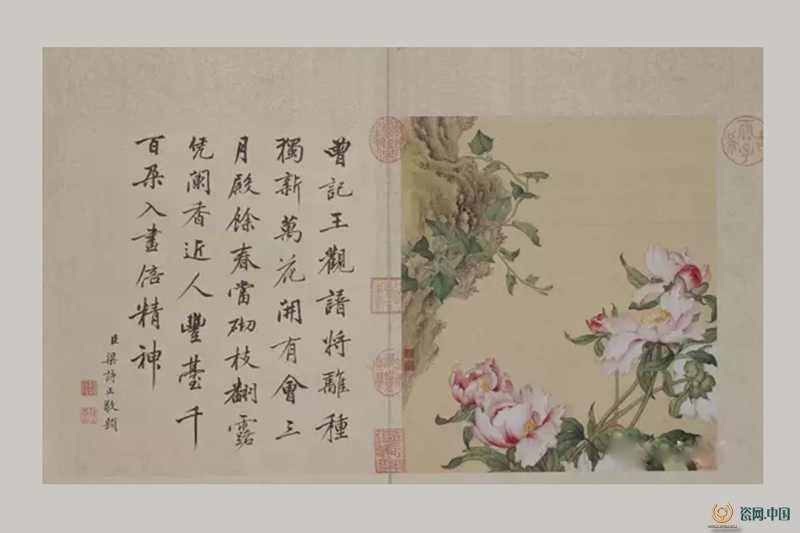 曹記王觀譜將離種
獨新萬花開有會三
月殿餘春當砌枝翻露
凭闌香近人豐臺千
百朵入畫倍精神
臣梁詩正敬題
瓷网.中国